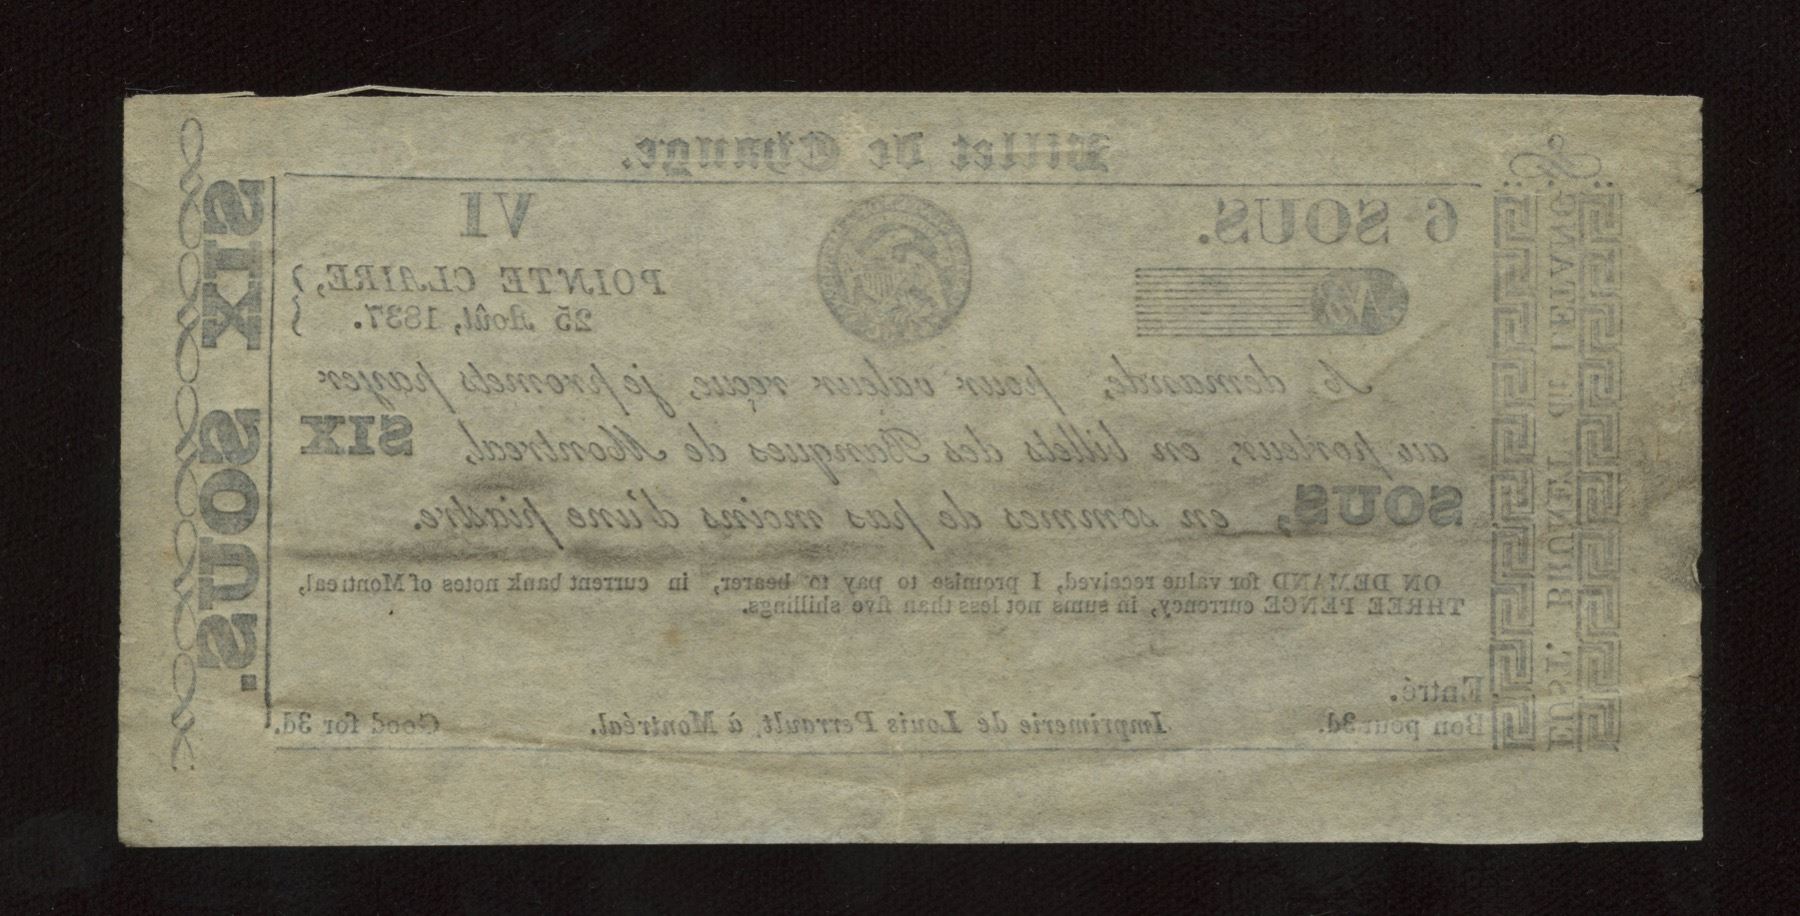 Billet de Change.
6 SOUS.
VI
No
POINTE CLAIRE,
25 Août, 1837.
A demande, pour valeur reçue, je promets payer
au porteur, en billets des Banques de Montreal, SIX
SOUS, en sommes de pas moins d'une piastre.
ON DEMAND for value received, I promise to pay to bearer, in current bank notes of Montreal,
THREE PENCE currency, in sums not less than five shillings.
Entré.
Bon pour 3d.
Imprimerie de Louis Perrault, à Montréal.
Good for 3d.
SIX SOUS.
EUST. BRUNET dit LETANG